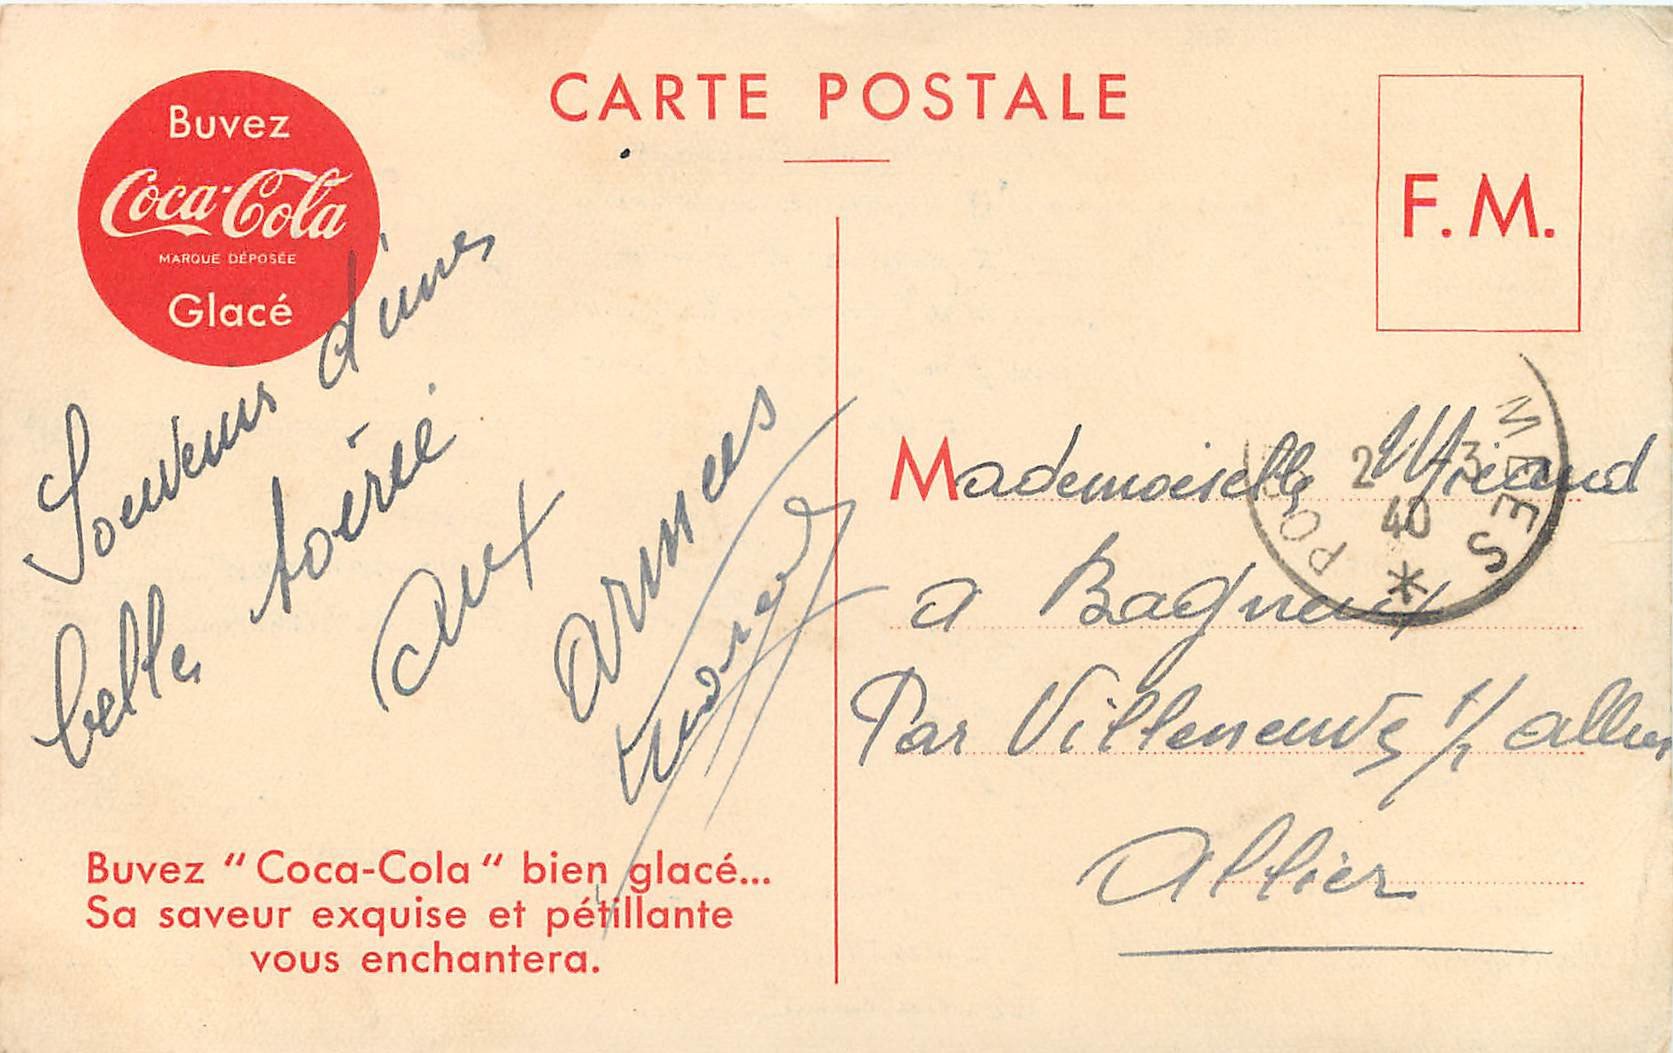 CARTE POSTALE
Buvez
Coca-Cola
MARQUE DÉPOSÉE
Glacé
F. M.
Souvenir d'une
belle soirée
aux
armées
Buvez "Coca-Cola" bien glacé...
Sa saveur exquise et pétillante
vous enchantera.
POSTES
2 3
40
*
Mademoiselle
a Bagneux
Par Villeneuve s/ allier
Allier